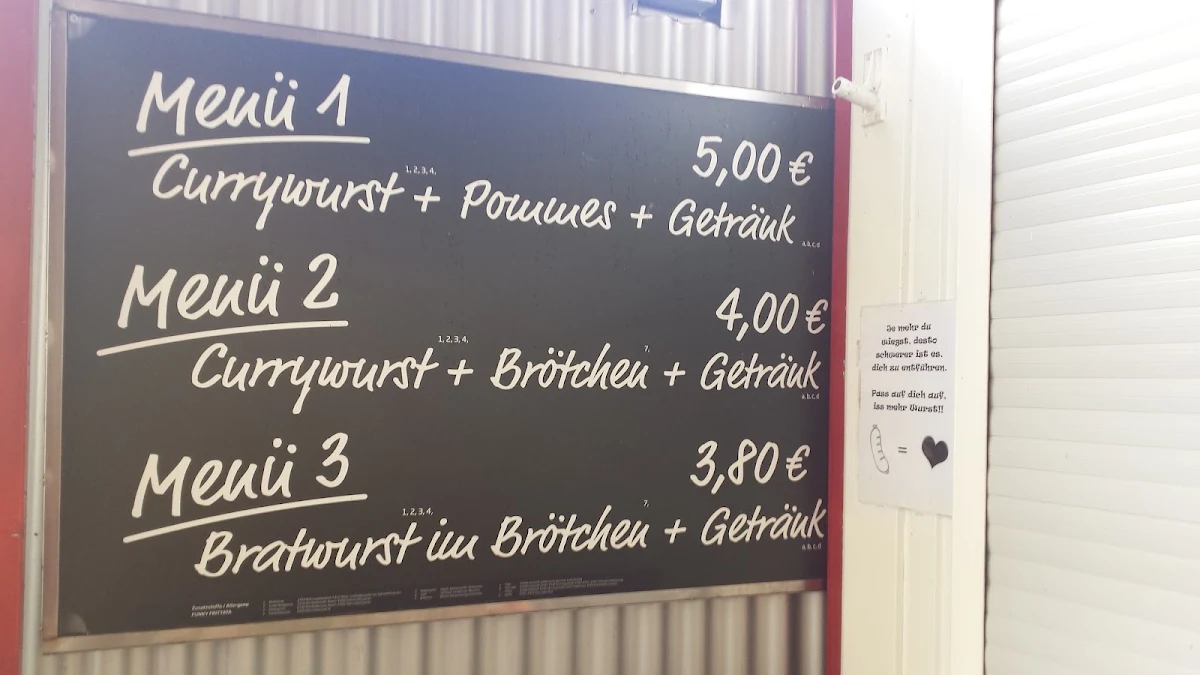 Menü 1
5,00 €
Currywurst 1, 2, 3, 4, + Pommes + Getränk a, b, c, d
Menü 2
4,00 €
Currywurst 1, 2, 3, 4, + Brötchen 7, + Getränk a, b, c, d
Menü 3
3,80 €
Bratwurst 1, 2, 3, 4, im Brötchen 7, + Getränk a, b, c, d
Zusatzstoffe / Allergene
Je mehr du
wiegst, desto
schwerer ist es,
dich zu entführen.
Pass auf dich auf,
iss mehr Wurst!!
=